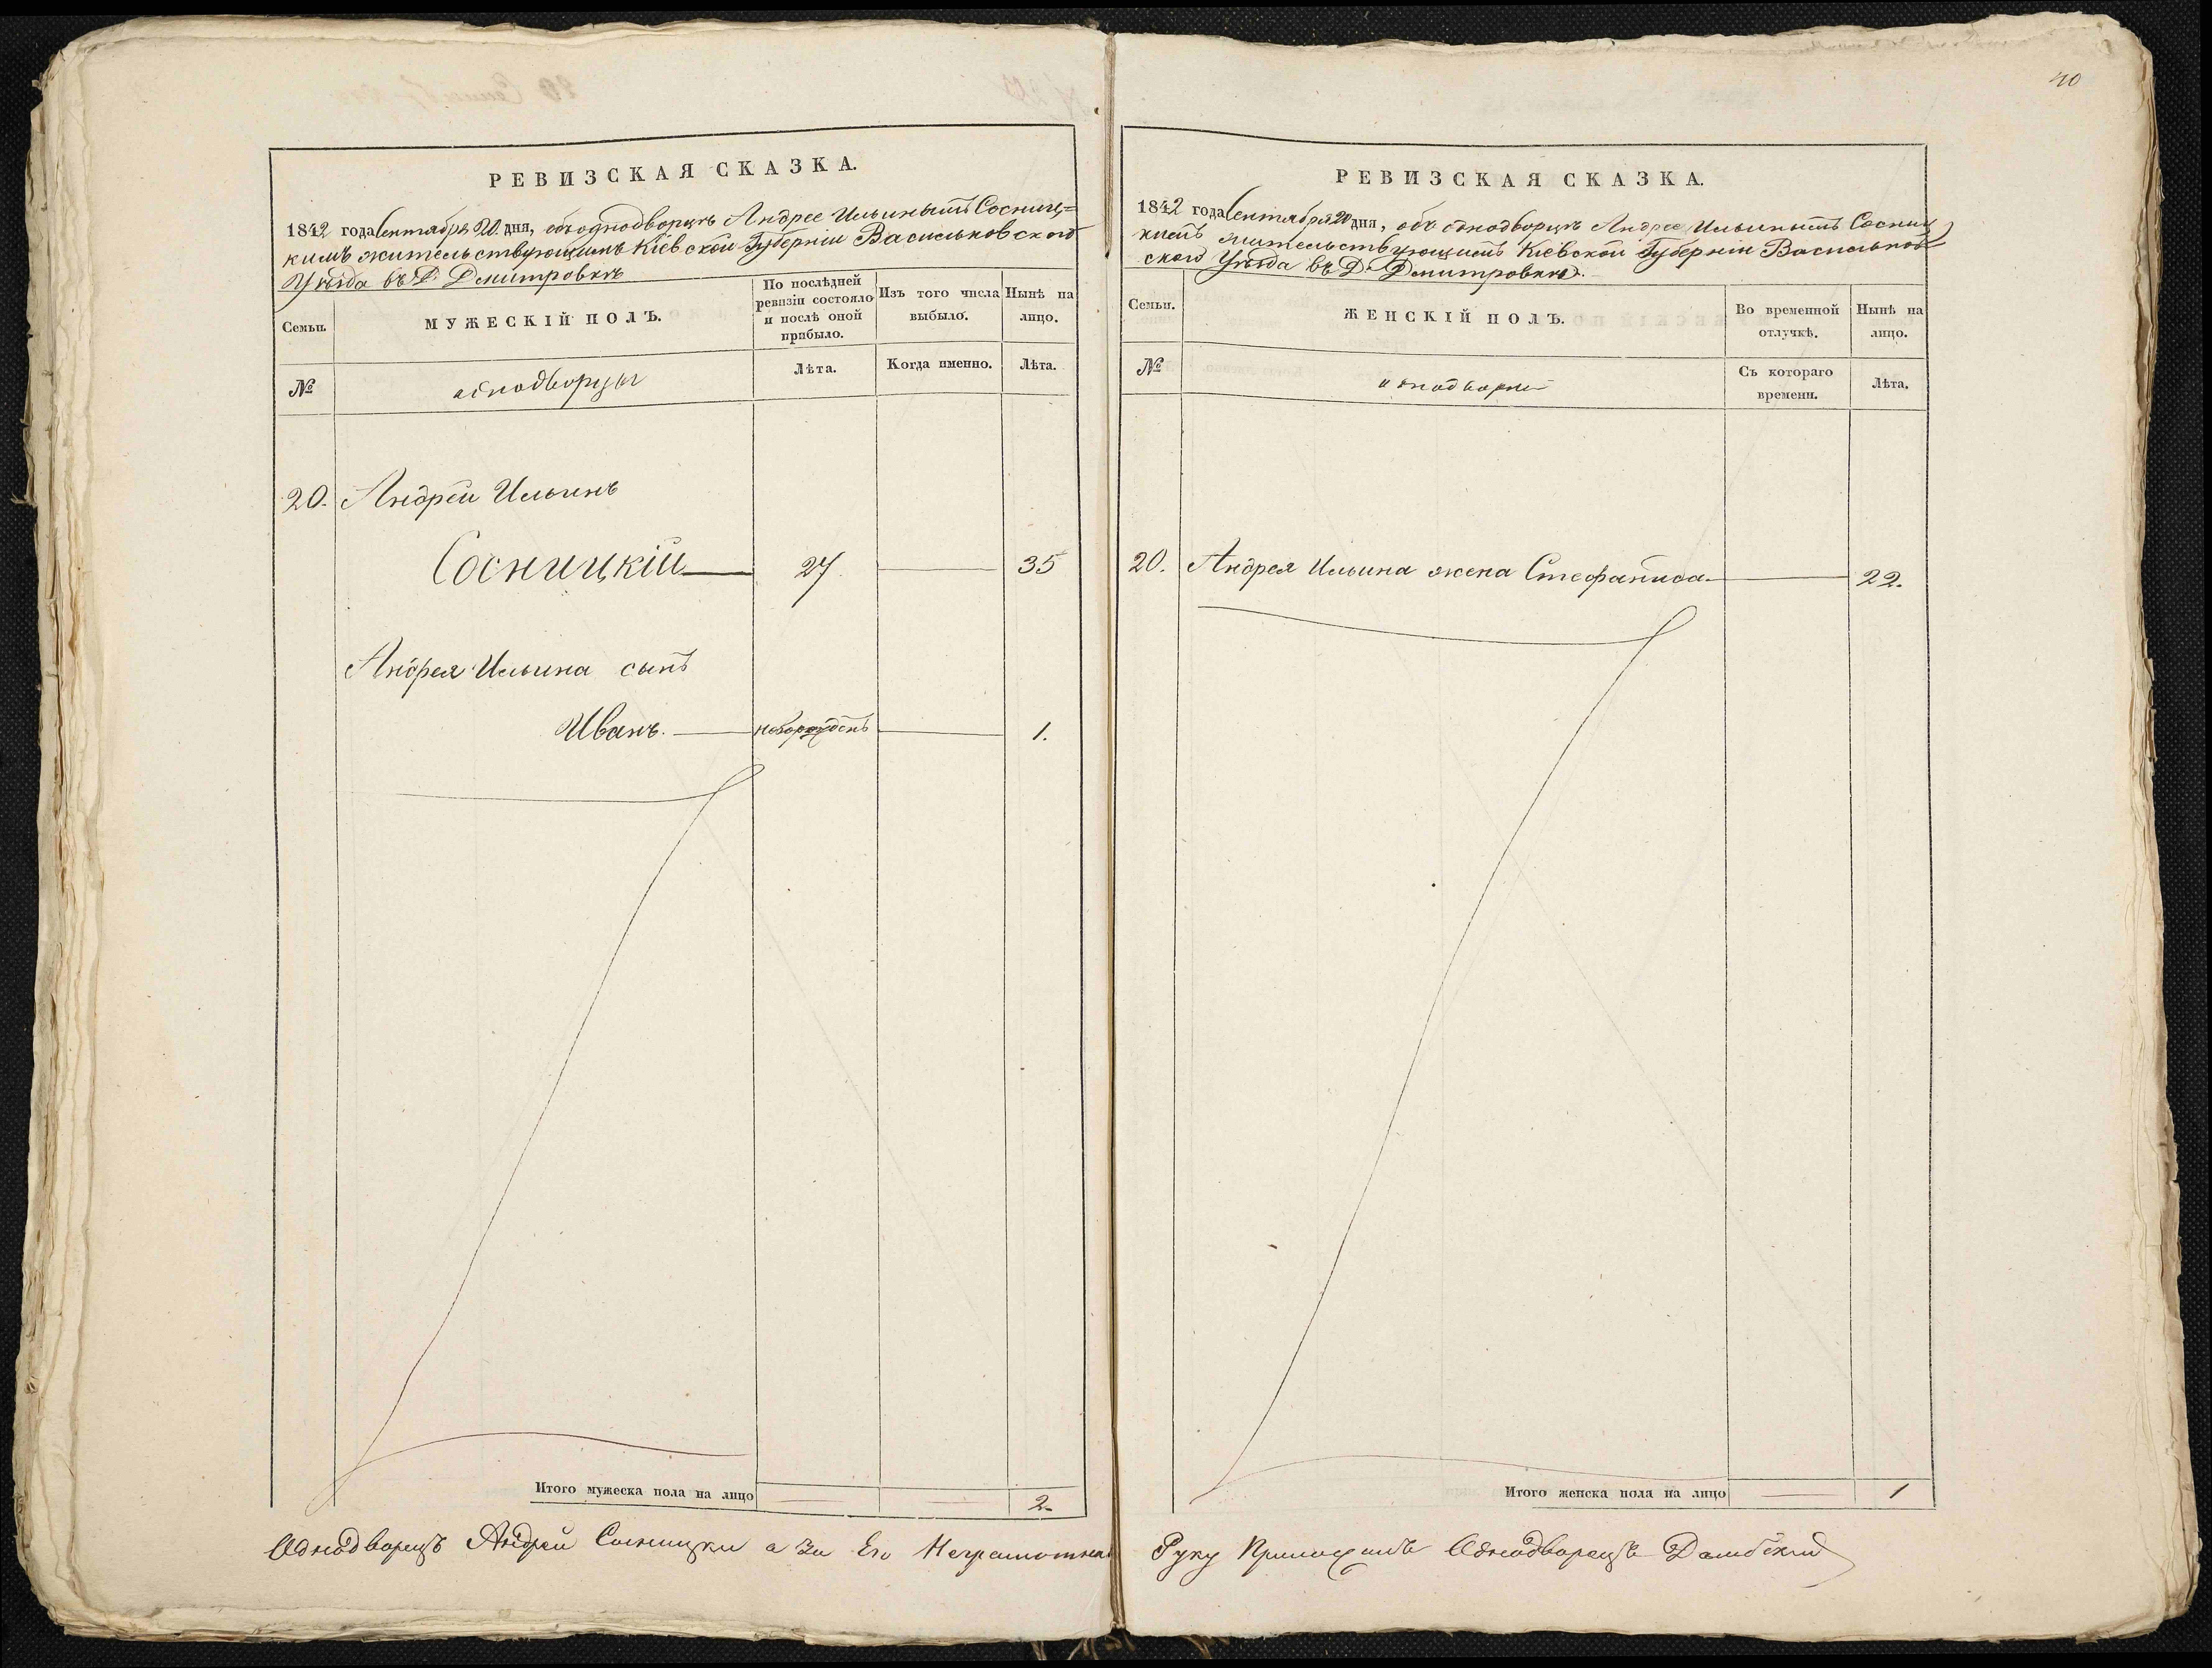 РЕВИЗСКАЯ СКАЗКА.
1842 года Сентября 20 дня, объ однодворцѣ Андрее Ильиномъ Сосниц=
кимъ жительствующимъ Кіевской Губерніи Васильковскаго
Уѣзда въ Д. Дмитровкѣ
Семьи.
МУЖЕСКІЙ ПОЛЪ.
По послѣдней
ревизіи состояло
и послѣ оной
прибыло.
Изъ того числа
выбыло.
Нынѣ на
лицо.
№
однодворцы
Лѣта.
Когда именно.
Лѣта.
20. Андрей Ильинъ
Сосницкій 27 35
Андрея Ильина сынъ
Иванъ. новорожденъ 1.
Итого мужеска пола на лицо 2.
Однодворецъ Андрей Сосницки а За Его Неграмотнаго
40
РЕВИЗСКАЯ СКАЗКА.
1842 года Сентября 20 дня, объ однодворцѣ Андрее Ильиномъ Сосниц
кимъ жительствующимъ Кіевской Губерніи Васильков
скаго Уѣзда въ Д. Дмитровкѣ.
Семьи.
ЖЕНСКІЙ ПОЛЪ.
Во временной
отлучкѣ.
Нынѣ на
лицо.
№
однодворки
Съ котораго
времени.
Лѣта.
20. Андрея Ильина жена Стефанида 22.
Итого женска пола на лицо 1
Руку Приложилъ Однодворецъ Домбскій